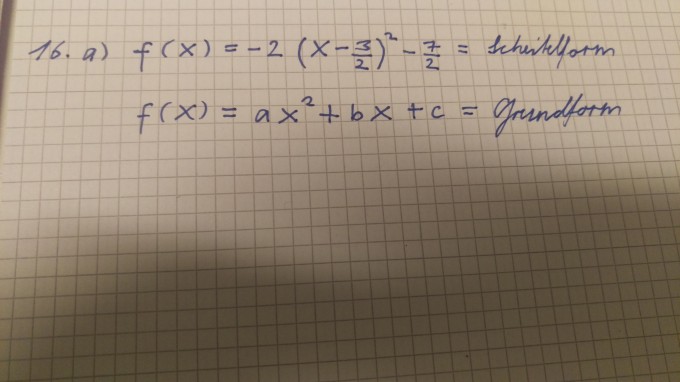 16. a) f(x) = -2 (x - 3/2)² - 7/2 = Scheitelform
f(x) = ax² + bx + c = Grundform